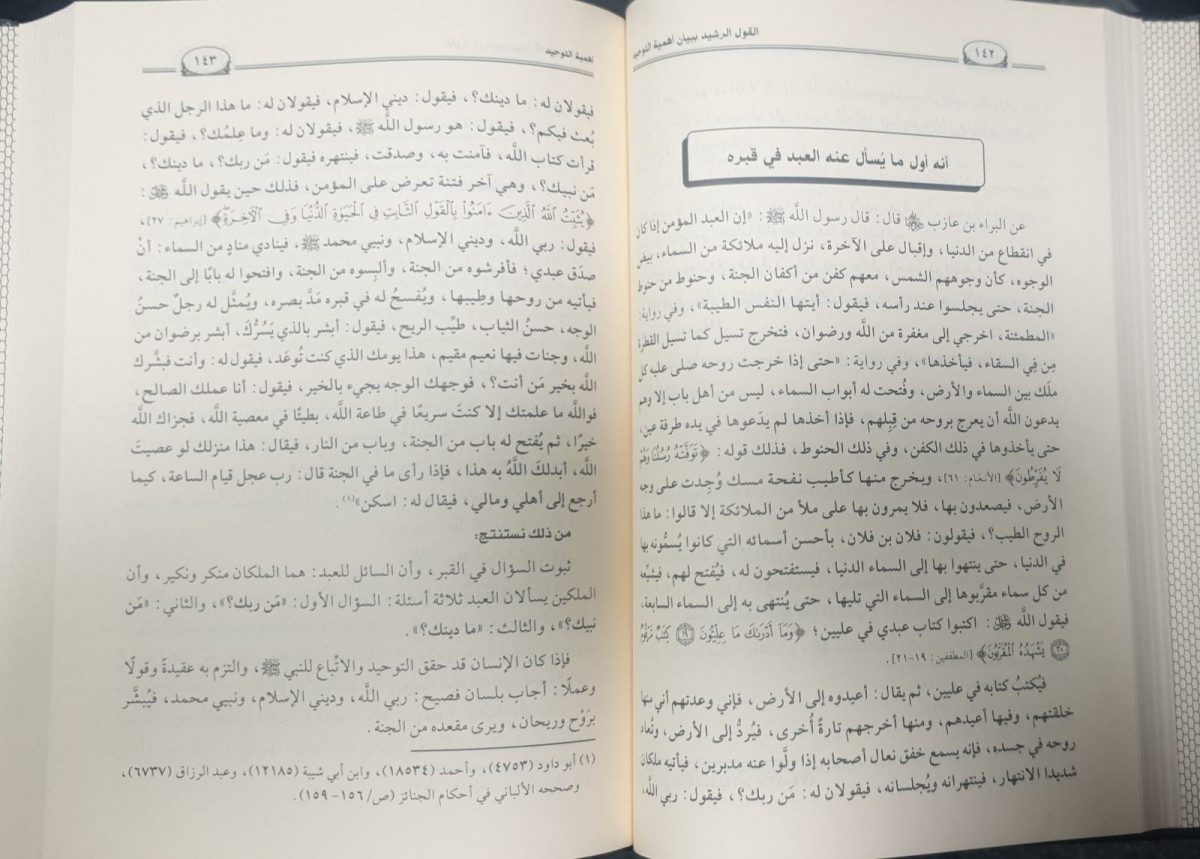 القول الرشيد ببيان أهمية التوحيد
١٤٢
أنه أول ما يُسأل عنه العبد في قبره
عن البراء بن عازب ﷺ قال: قال رسول اللَّه ﷺ: «إن العبد المؤمن إذا كان
في انقطاع من الدنيا، وإقبال على الآخرة، نزل إليه ملائكة من السماء، بيض
الوجوه، كأن وجوههم الشمس، معهم كفن من أكفان الجنة، وحنوط من حنوط
الجنة، حتى يجلسوا عند رأسه، فيقول: أيتها النفس الطيبة»، وفي رواية:
«المطمئنة، اخرجي إلى مغفرة من اللَّه ورضوان، فتخرج تسيل كما تسيل القطرة
مِن فِي السقاء، فيأخذها»، وفي رواية: «حتى إذا خرجت روحه صلى عليه كل
ملَك بين السماء والأرض، وفُتحت له أبواب السماء، ليس من أهل باب إلا وهم
يدعون اللَّه أن يعرج بروحه من قِبلهم، فإذا أخذها لم يدَعوها في يده طرفة عين،
حتى يأخذوها في ذلك الكفن، وفي ذلك الحنوط، فذلك قوله: ﴿تَوَفَّتْهُ رُسُلُنَا وَهُمْ
لَا يُفَرِّطُونَ﴾ [الأنعام: ٦١]، ويخرج منها كأطيب نفحة مسك وُجِدت على وجه
الأرض، فيصعدون بها، فلا يمرون بها على ملأ من الملائكة إلا قالوا: ما هذا
الروح الطيب؟، فيقولون: فلان بن فلان، بأحسن أسمائه التي كانوا يُسمُّونه بها
في الدنيا، حتى ينتهوا بها إلى السماء الدنيا، فيستفتحون له، فيُفتح لهم، فيشيّعه
من كل سماء مقرَّبوها إلى السماء التي تليها، حتى يُنتهى به إلى السماء السابعة،
فيقول اللَّه ﷻ: اكتبوا كتاب عبدي في عليين؛ ﴿وَمَآ أَدْرَىٰكَ مَا عِلِّيُّونَ ۝١٩ كِتَٰبٌ مَّرْقُومٌ
۝٢٠ يَشْهَدُهُ الْمُقَرَّبُونَ﴾ [المطففين: ١٩-٢١].
فيُكتبُ كتابه في عليين، ثم يقال: أعيدوه إلى الأرض، فإني وعدتهم أني منها
خلقتهم، وفيها أعيدهم، ومنها أخرجهم تارةً أُخرى، فيُردُّ إلى الأرض، وتُعاد
روحه في جسده، فإنه يسمع خفق نعال أصحابه إذا ولَّوا عنه مدبرين، فيأتيه ملكان
شديدا الانتهار، فينتهرانه ويُجلسانه، فيقولان له: مَن ربك؟، فيقول: ربي اللَّه،
أهمية التوحيد
١٤٣
فيقولان له: ما دينك؟، فيقول: ديني الإسلام، فيقولان له: ما هذا الرجل الذي
بُعث فيكم؟، فيقول: هو رسول اللَّه ﷺ، فيقولان له: وما عِلمُك؟، فيقول:
قرأت كتاب اللَّه، فآمنت به، وصدقت، فينتهره فيقول: مَن ربك؟، ما دينك؟،
مَن نبيك؟، وهي آخر فتنة تعرض على المؤمن، فذلك حين يقول اللَّه ﷻ:
﴿يُثَبِّتُ اللَّهُ الَّذِينَ ءَامَنُوا بِالْقَوْلِ الثَّابِتِ فِي الْحَيَوٰةِ الدُّنْيَا وَفِي الْآخِرَةِ﴾ [إبراهيم: ٢٧]،
فيقول: ربي اللَّه، وديني الإسلام، ونبيي محمد ﷺ، فينادي منادٍ من السماء: أنْ
صدَق عبدي؛ فأفرشوه من الجنة، وألبِسوه من الجنة، وافتحوا له بابًا إلى الجنة،
فيأتيه من روحها وطِيبها، ويُفسحُ له في قبره مَدَّ بصره، ويُمثَّل له رجلٌ حسنُ
الوجه، حسنُ الثياب، طيِّب الريح، فيقول: أبشر بالذي يَسُرُّكَ، أبشر برضوان من
اللَّه، وجنات فيها نعيم مقيم، هذا يومك الذي كنت تُوعَد، فيقول له: وأنت فبشَّرك
اللَّه بخير مَن أنت؟، فوجهك الوجه يجيء بالخير، فيقول: أنا عملك الصالح،
فواللَّه ما علمتك إلا كنتَ سريعًا في طاعة اللَّه، بطيئًا في معصية اللَّه، فجزاك اللَّه
خيرًا، ثم يُفتح له باب من الجنة، وباب من النار، فيقال: هذا منزلك لو عصيتَ
اللَّه، أبدلكَ اللَّهُ به هذا، فإذا رأى ما في الجنة قال: رب عجل قيام الساعة، كيما
أرجع إلى أهلي ومالي، فيقال له: اسكن»(١).
من ذلك نستنتج:
ثبوت السؤال في القبر، وأن السائل للعبد: هما الملكان منكر ونكير، وأن
الملكين يسألان العبد ثلاثة أسئلة: السؤال الأول: «مَن ربك؟»، والثاني: «مَن
نبيك؟»، والثالث: «ما دينك؟».
فإذا كان الإنسان قد حقق التوحيد والاتِّباع للنبي ﷺ، والتزم به عقيدةً وقولًا
وعملًا: أجاب بلسان فصيح: ربي اللَّه، وديني الإسلام، ونبيي محمد، فيُبشَّر
برَوْح وريحان، ويرى مقعده من الجنة.
(١) أبو داود (٤٧٥٣)، وأحمد (١٨٥٣٤)، وابن أبي شيبة (١٢١٨٥)، وعبد الرزاق (٦٧٣٧)،
وصححه الألباني في أحكام الجنائز (ص/ ١٥٦- ١٥٩).